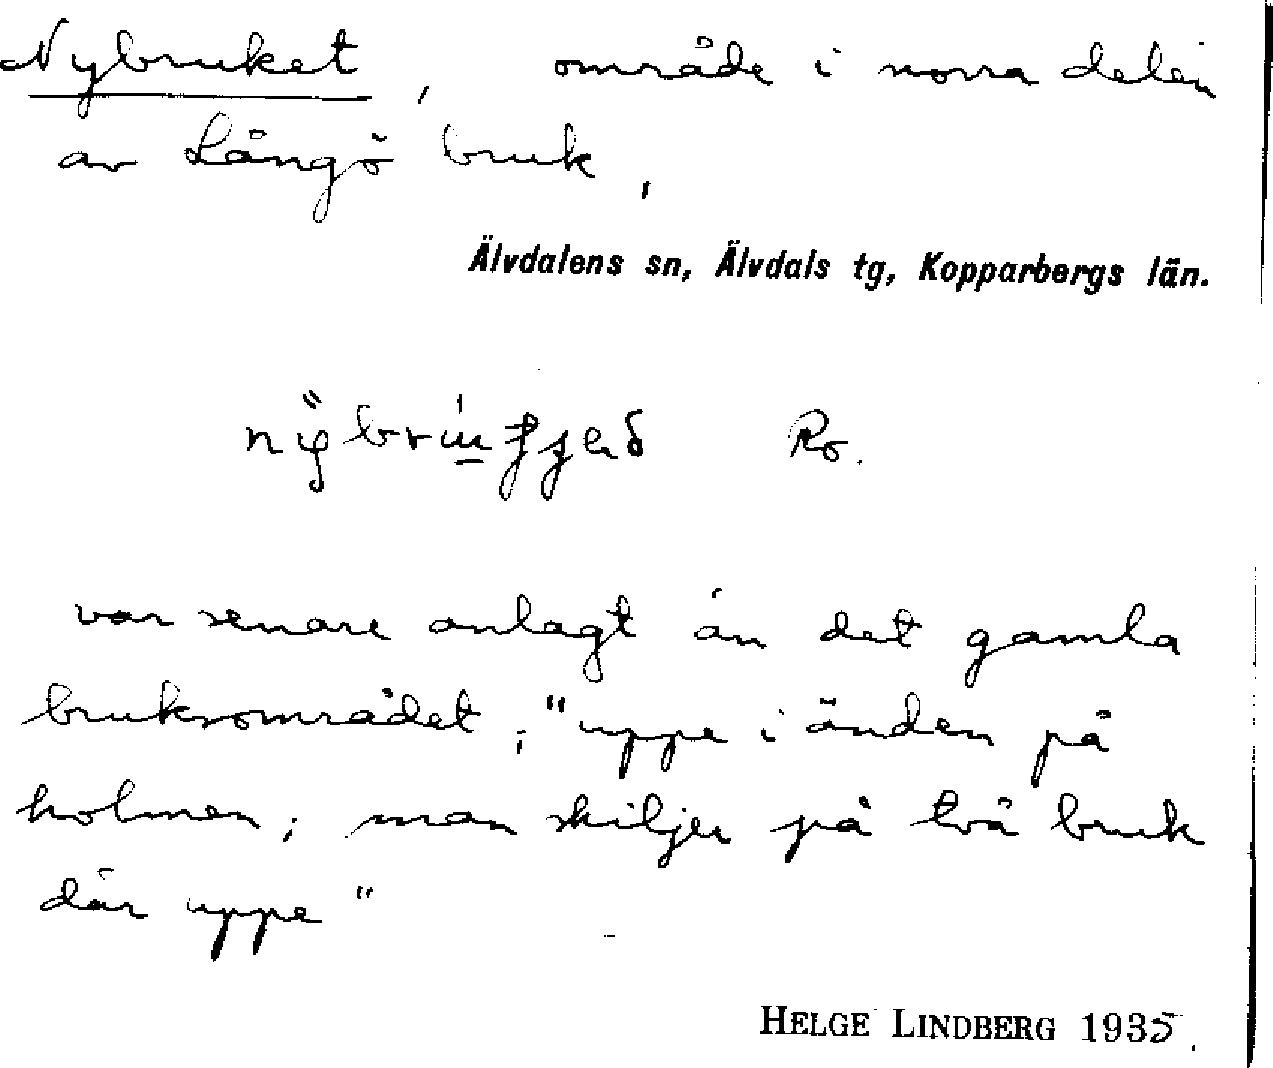 Nybruket, område i norra delen
av Långö bruk,
Älvdalens sn, Älvdals tg, Kopparbergs län.
Ro.
var senare anlagt än det gamla
bruksområdet; "uppe i änden på
holmen; man skiljer på två bruk
där uppe"
HELGE LINDBERG 1935.